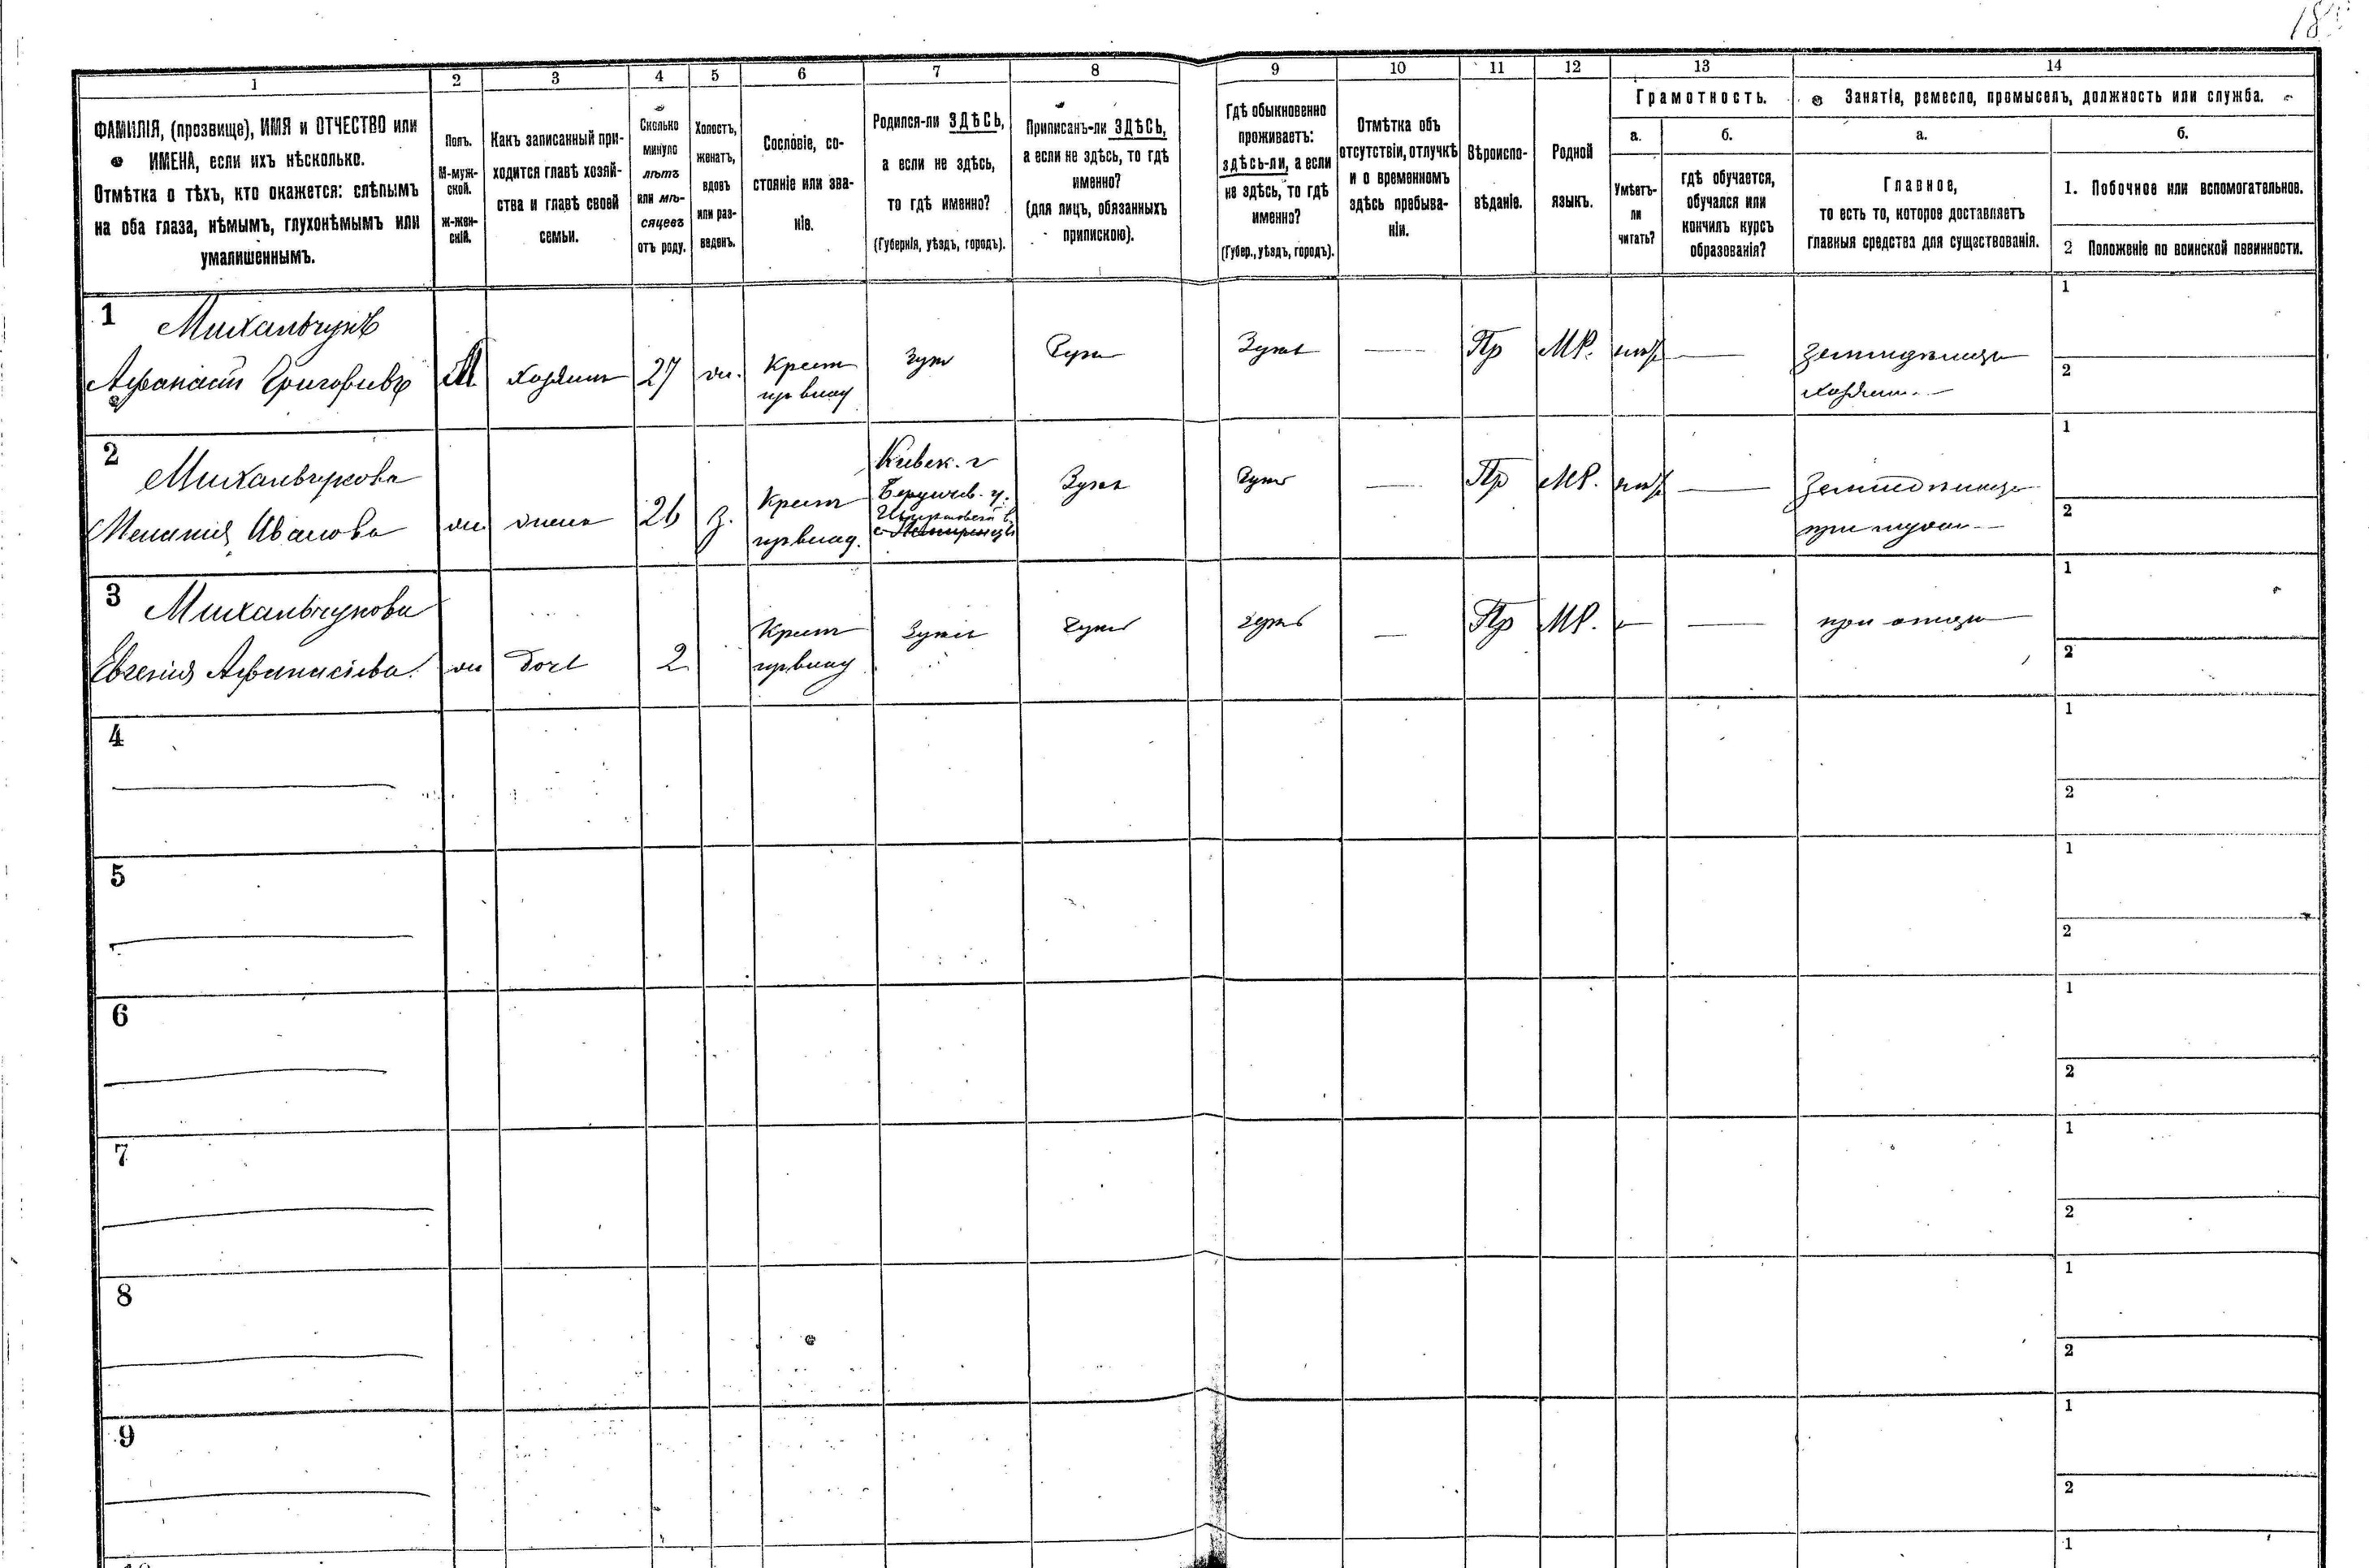 18
1
2
3
4
5
6
7
8
9
10
11
12
13
14
ФАМИЛІЯ, (прозвище), ИМЯ и ОТЧЕСТВО или
ИМЕНА, если ихъ нѣсколько.
Отмѣтка о тѣхъ, кто окажется: слѣпымъ
на оба глаза, нѣмымъ, глухонѣмымъ или
умалишеннымъ.
Полъ.
М-муж-
ской.
ж-жен-
скій.
Какъ записанный при-
ходится главѣ хозяй-
ства и главѣ своей
семьи.
Сколько
минуло
лѣтъ
или мѣ-
сяцевъ
отъ роду.
Холостъ,
женатъ,
вдовъ
или раз-
веденъ.
Сословіе, со-
стояніе или зва-
ніе.
Родился-ли ЗДѢСЬ,
а если не здѣсь,
то гдѣ именно?
(Губернія, уѣздъ, городъ).
Приписанъ-ли ЗДѢСЬ,
а если не здѣсь, то гдѣ
именно?
(для лицъ, обязанныхъ
припискою).
Гдѣ обыкновенно
проживаетъ:
здѣсь-ли, а если
не здѣсь, то гдѣ
именно?
(Губер., уѣздъ, городъ).
Отмѣтка объ
отсутствіи, отлучкѣ
и о временномъ
здѣсь пребыва-
ніи.
Вѣроиспо-
вѣданіе.
Родной
языкъ.
Грамотность.
а.
Умѣетъ-
ли
читать?
б.
гдѣ обучается,
обучался или
кончилъ курсъ
образованія?
Занятіе, ремесло, промыселъ, должность или служба.
а.
Главное,
то есть то, которое доставляетъ
главныя средства для существованія.
б.
1. Побочное или вспомогательное.
2 Положеніе по воинской повинности.
1
Михальчукъ
Афанасій Григорьевъ
М
хозяинъ
27
ж.
Крест
Пр
МР.
хозяин
1
2
2
Михальчукова
Меланія Иванова
ж
жена
26
з.
Крест
Киевск. г
Бердичев. у.
Пр
МР.
при мужѣ
1
2
3
Михальчукова
Евгенія Афанасіева
ж
дочь
2
Крест
Пр
МР.
при отцѣ
1
2
4
1
2
5
1
2
6
1
2
7
1
2
8
1
2
9
1
2
1